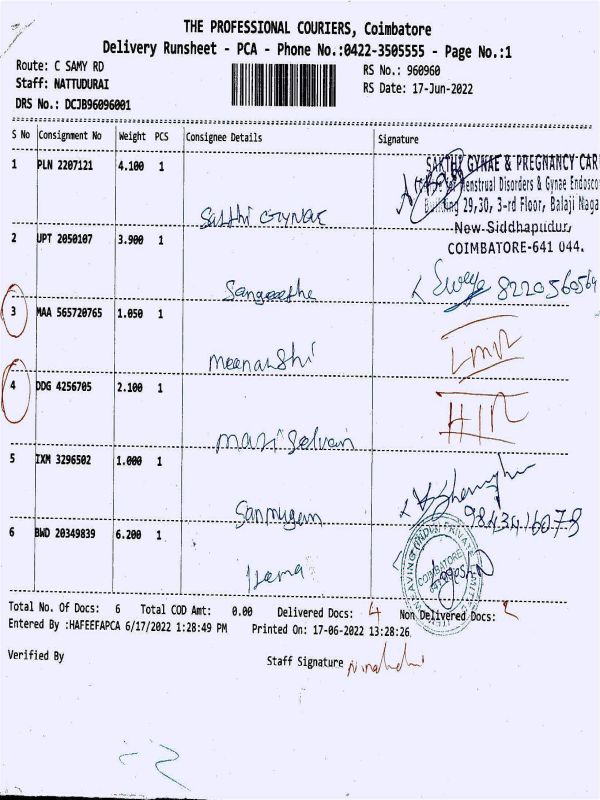 THE PROFESSIONAL COURIERS, Coimbatore
Delivery Runsheet - PCA - Phone No.:0422-3505555 - Page No.:1
Route: C SAMY RD
RS No.: 960960
Staff: NATTUDURAI
RS Date: 17-Jun-2022
DRS No.: DCJB96096001
S No Consignment No Weight PCS Consignee Details Signature
1 PLN 2207121 4.100 1
SAKTHI GYNAE & PREGNANCY CAR
Menstrual Disorders & Gynae Endosco
29,30, 3-rd Floor, Balaji Naga
Sakthi GYNAE
New Siddhapudur,
COIMBATORE-641 044.
2 UPT 2050107 3.900 1
Sangeethe
8220560569
3 MAA 565720765 1.050 1
meenakshi
4 DDG 4256705 2.100 1
mari Selvam
5 IXM 3296502 1.000 1
Sanmugam
9843416078
6 BWD 20349839 6.200 1
COIMBATORE
Hema
Total No. Of Docs: 6 Total COD Amt: 0.00 Delivered Docs: 4 Non Delivered Docs: 2
Entered By :HAFEEFAPCA 6/17/2022 1:28:49 PM Printed On: 17-06-2022 13:28:26
Verified By
Staff Signature